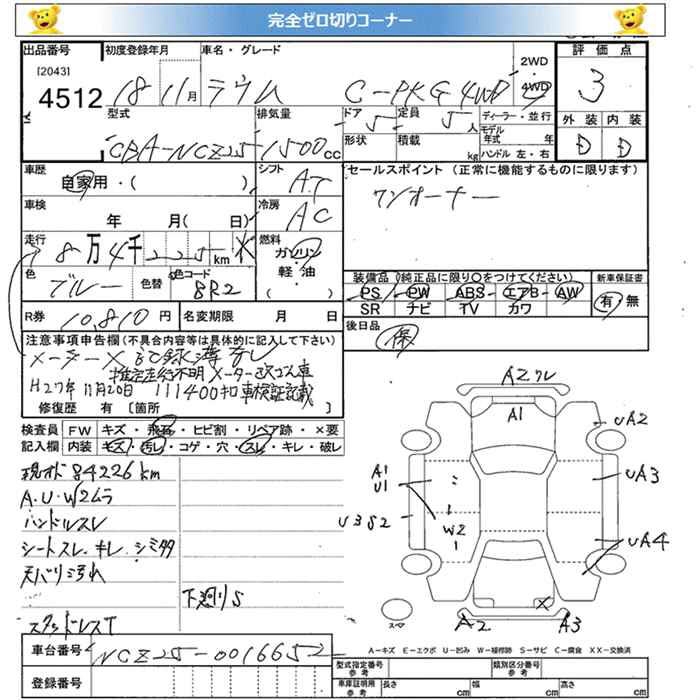 完全ゼロ切りコーナー
出品番号 初度登録年月 車名・グレード 2WD 評価点
[2043]
4512 18 11月 ラウム C-PKG 4WD 4WD 3
型式 排気量 ドア 定員 ディーラー・並行 外装 内装
5 5人 モデル年式 年
CBA-NCZ25 1500cc 形状 積載 kg ハンドル 左・右 D D
車歴 シフト セールスポイント(正常に機能するものに限ります)
自家用・( ) AT ワンオーナー
車検 冷房
年 月( 日) AC
走行 8万4千225km 燃料
ガソリン
軽油
( )
色 ブルー 色替 色コード 8R2
装備品(純正品に限り○をつけてください) 新車保証書
PS PW ABS エアB AW 有・無
SR ナビ TV カワ
R券 10,810円 名変期限 月 日
後日品 保
注意事項申告欄(不具合内容等は具体的に記入して下さい)
メーター×記録簿なし
推定走行不明 メーター改ざん車
H27年11月20日 111400キロ車検証記載
修復歴 有 [箇所 ]
検査員 FW キズ・飛石・ヒビ割・リペア跡・×要
記入欄 内装 キズ・汚れ・コゲ・穴・スレ・キレ・破レ
現オド84226km
A.U.W2ムラ
ハンドルスレ
シートスレ.キレ.シミ多
天バリ汚れ
下廻りS
スタッドレスT
A2ワレ
A1
UA2
A1
U1
UA3
U3S2
W2
UA4
A2
A3
スペア
A-キズ E-エクボ U-凹み W-補修跡 S-サビ C-腐食 XX-交換済
車台番号 NCZ25-0016652
登録番号
型式指定番号 参考 類別区分番号 参考
車庫証明用 参考 長さ cm 幅 cm 高さ cm